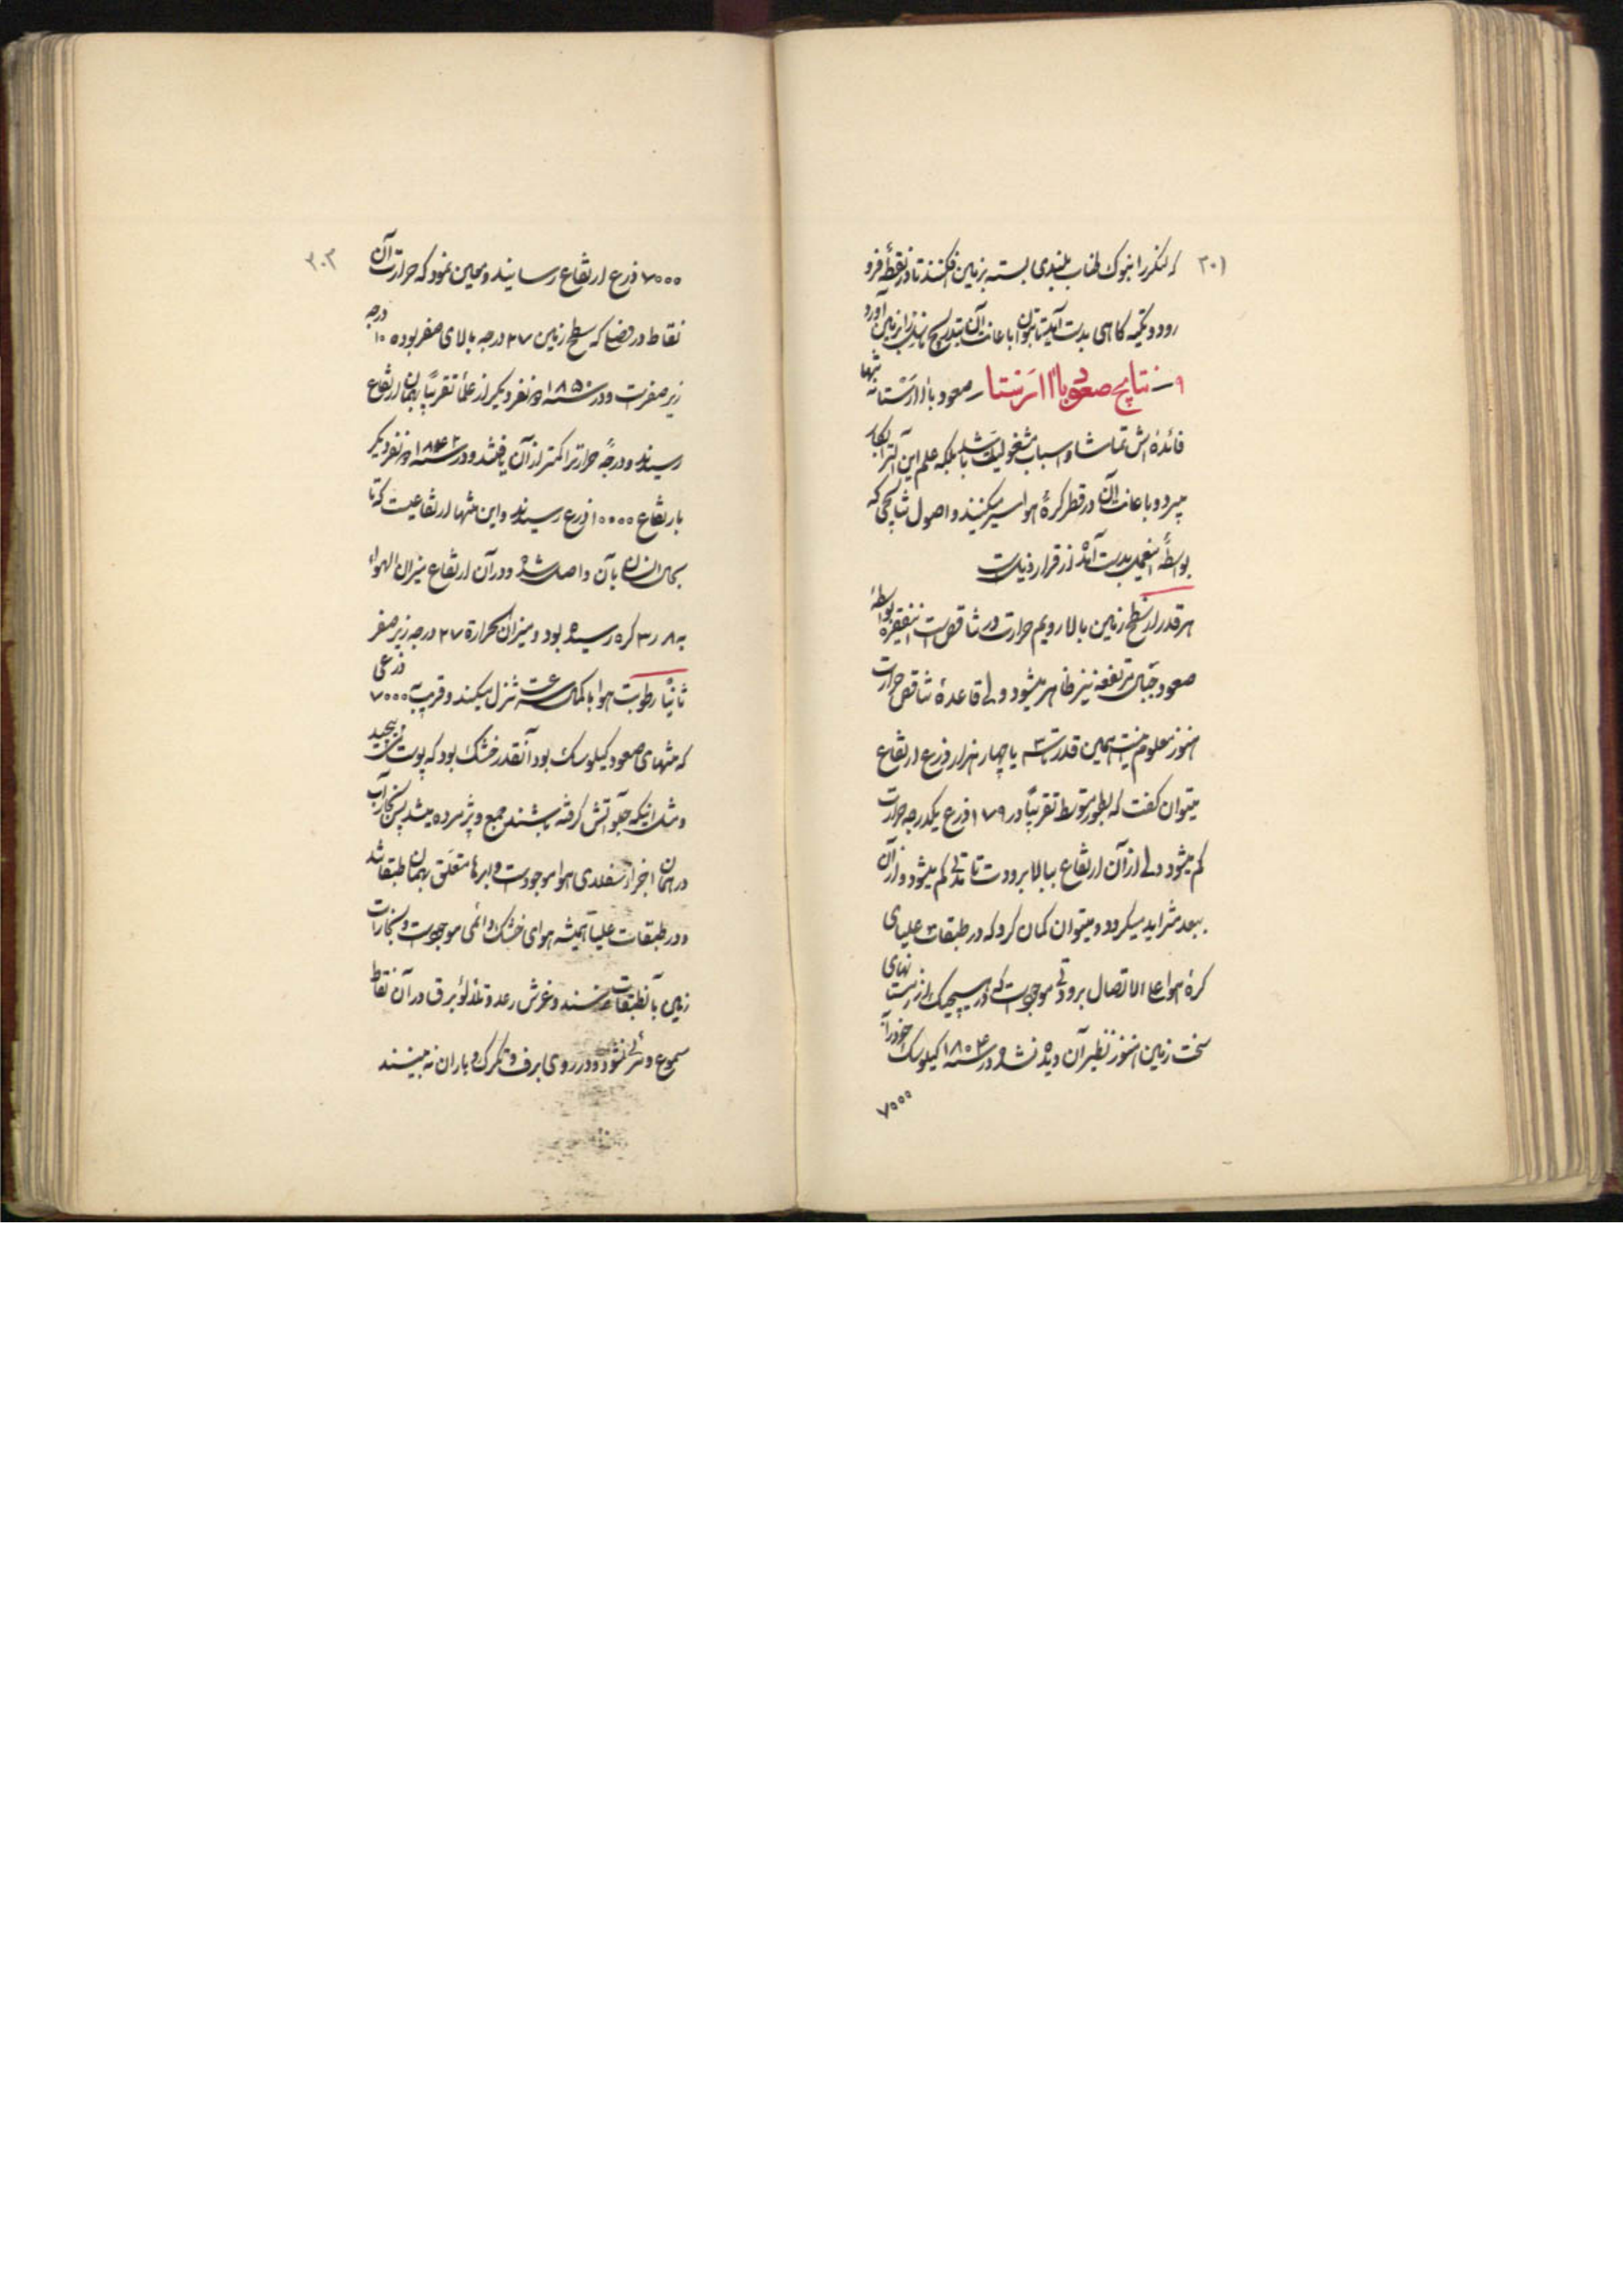 ۳۰۱
که لنگر را بنوک طناب بلندی بسته بزمین افکنند تا در نقطهٔ فرو
رود و تکیه کاهی بدست آید تا بتوان باعانت آن بتدریج بالن را بزمین آورد
۹ - نتایج صعود با اارستا - صعود با اارستا نه تنها
فائده اش تماشا و اسباب مشغولیت باشد بلکه علم این آلت را بکار
میبرد و باعانت آن در قطر کرهٔ هوا سیر میکنند و اصول نتایجی که
بواسطهٔ این عمل بدست آمده از قرار ذیل است
هر قدر از سطح زمین بالا رویم حرارت در تناقص است این فقره بواسطهٔ
صعود جبال مرتفعه نیز ظاهر میشود ولی قاعدهٔ تناقص حرارت
هنوز معلوم نیست همین قدر تا سه یا چهار هزار ذرع ارتفاع
میتوان گفت که بطور متوسط تقریباً در ۱۷۹ ذرع یکدرجه حرارت
کم میشود ولی از آن ارتفاع ببالا برودت تا مدتی کم میشود و از آن
ببعد متزاید میگردد و میتوان گمان کرد که در طبقات علیای
کرهٔ هوا علی الاتصال برودتی موجود است که در هیچیک از زمستانهای
سخت زمین هنوز نظیر آن دیده نشده در سنه ۱۸۰۴ گیلوسک خود را به
۷۰۰۰
۳۰۲
۷۰۰۰ ذرع ارتفاع رسانید و معین نمود که حرارت آن
نقاط در فضا که سطح زمین ۲۷ درجه بالای صفر بوده ۱۰ درجه
زیر صفر است و در سنه ۱۸۵۰ دو نفر دیگر از علما تقریباً بهمان ارتفاع
رسیدند و درجه حرارت را کمتر از آن یافتند و در سنه ۱۸۶۲ دو نفر دیگر
بارتفاع ۱۰۰۰۰ ذرع رسیدند و این منتها ارتفاعیست که تا
بحال انسان بآن واصل شده و در آن ارتفاع میزان الهواء
به ۳٫۸ گره رسیده بود و میزان الحرارة ۲۷ درجه زیر صفر
ثانیاً رطوبت هوا با کمال سرعت تنزل میکند و قریب به ۷۰۰۰ ذرعی
که منتهای صعود گیلوسک بود آنقدر خشک بود که پوست میپیچید
و مثل اینکه جلو آتش گرفته باشند جمع و پژمرده میشد پس بخار آب
در همان اجزاء سفلای هوا موجود است و ابرها متعلق بهمان طبقات اند
و در طبقات علیا همیشه هوای خشک دائمی موجود است و بخارات
زمین بآن طبقات نرسند و غرش رعد و تلألؤ برق در آن نقاط
مسموع و مرئی نشود و در روی ابر برف و تگرگ و باران نه بینند